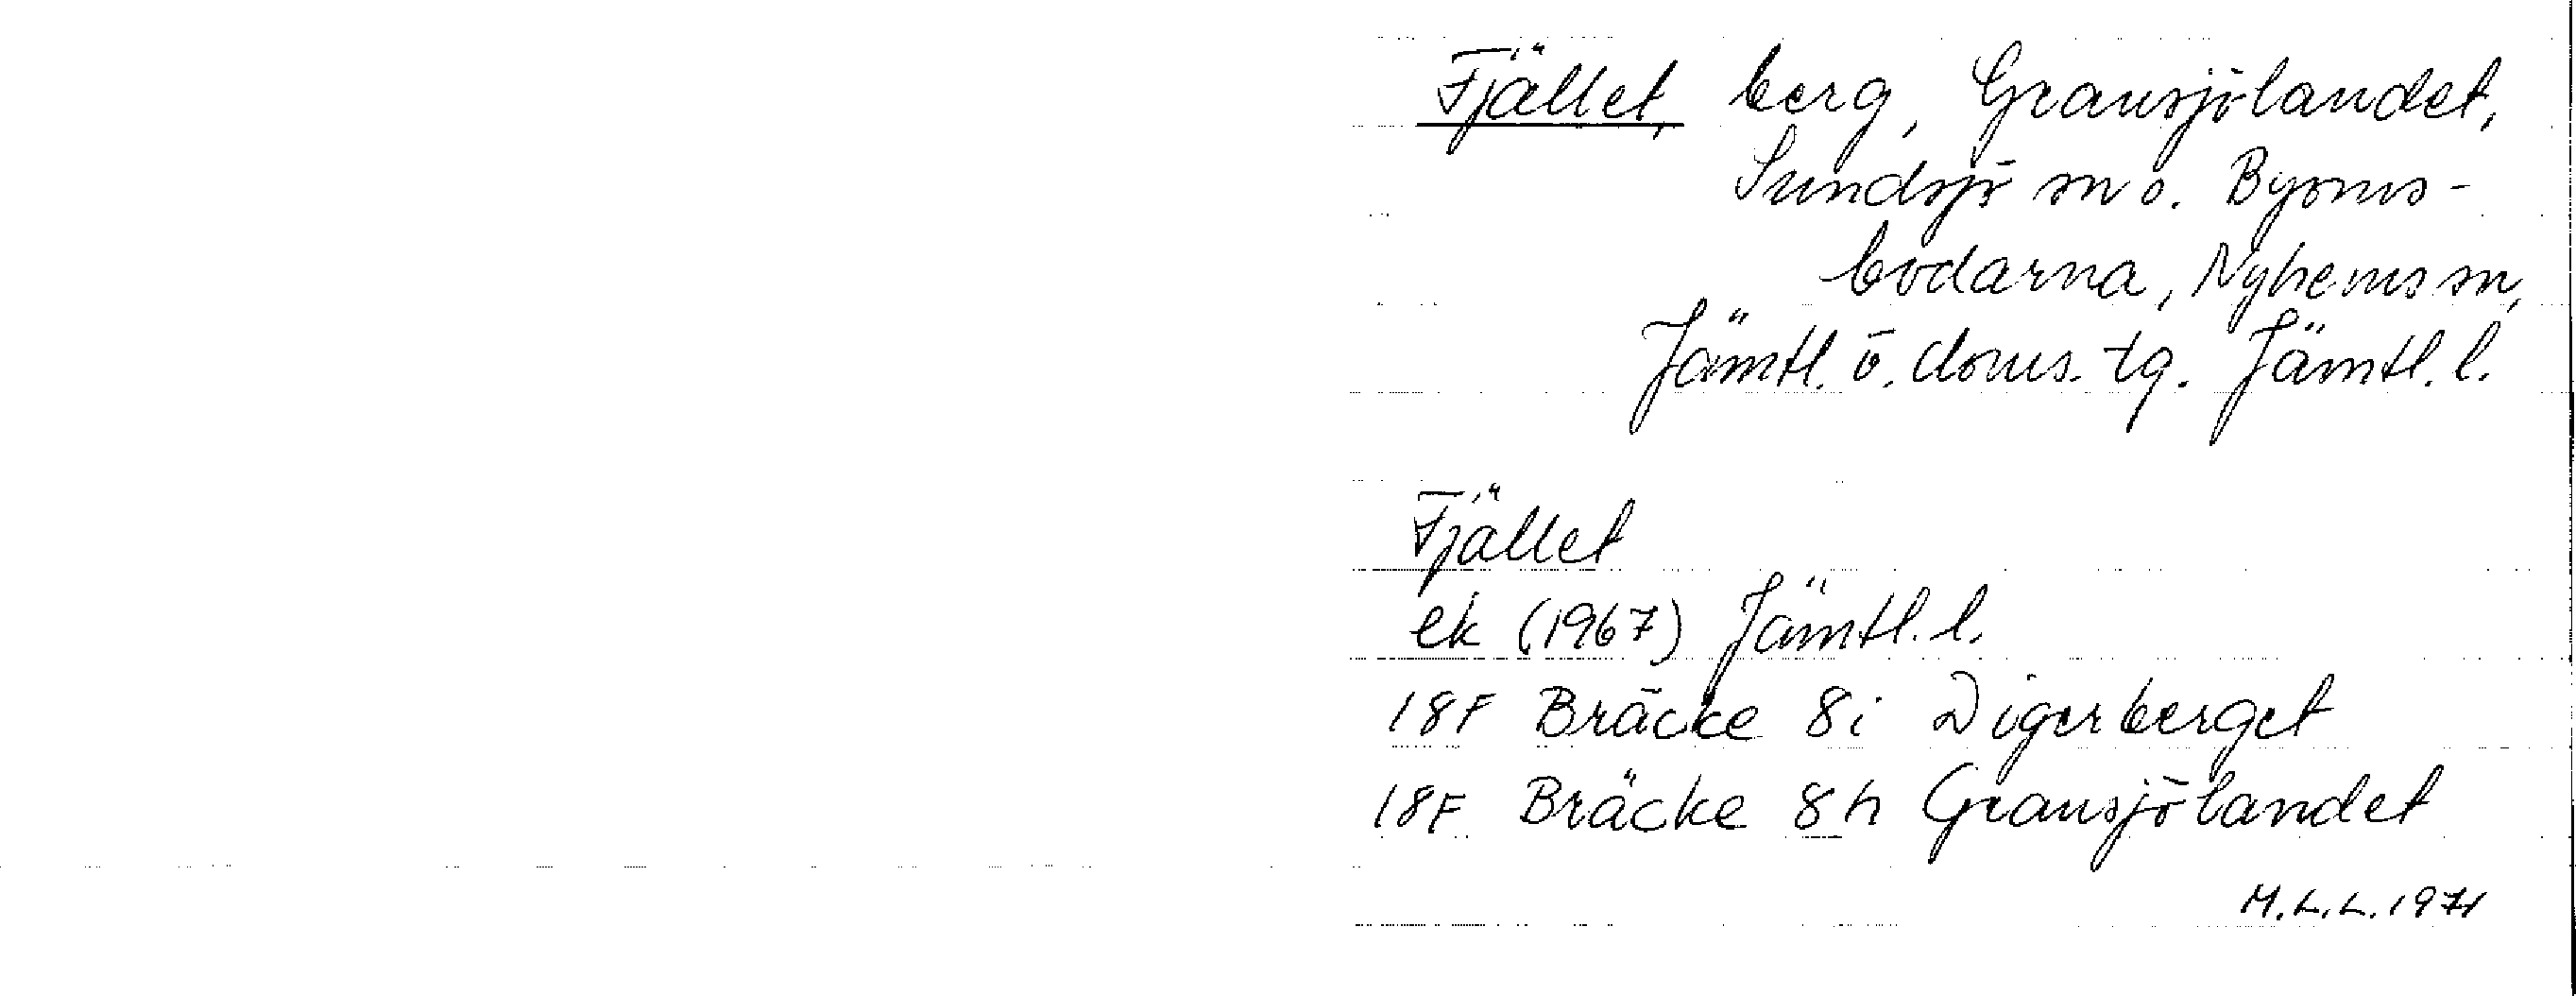 Fjället, berg, Gransjölandet,
Sundsjö sn o. Byoms-
bodarna, Nyhems sn,
Jämtl. ö. doms. tg. Jämtl. l.
Fjället
ek (1967) Jämtl. l.
18F Bräcke 8i Digerberget
18F Bräcke 8h Gransjölandet
M.L.L. 1971